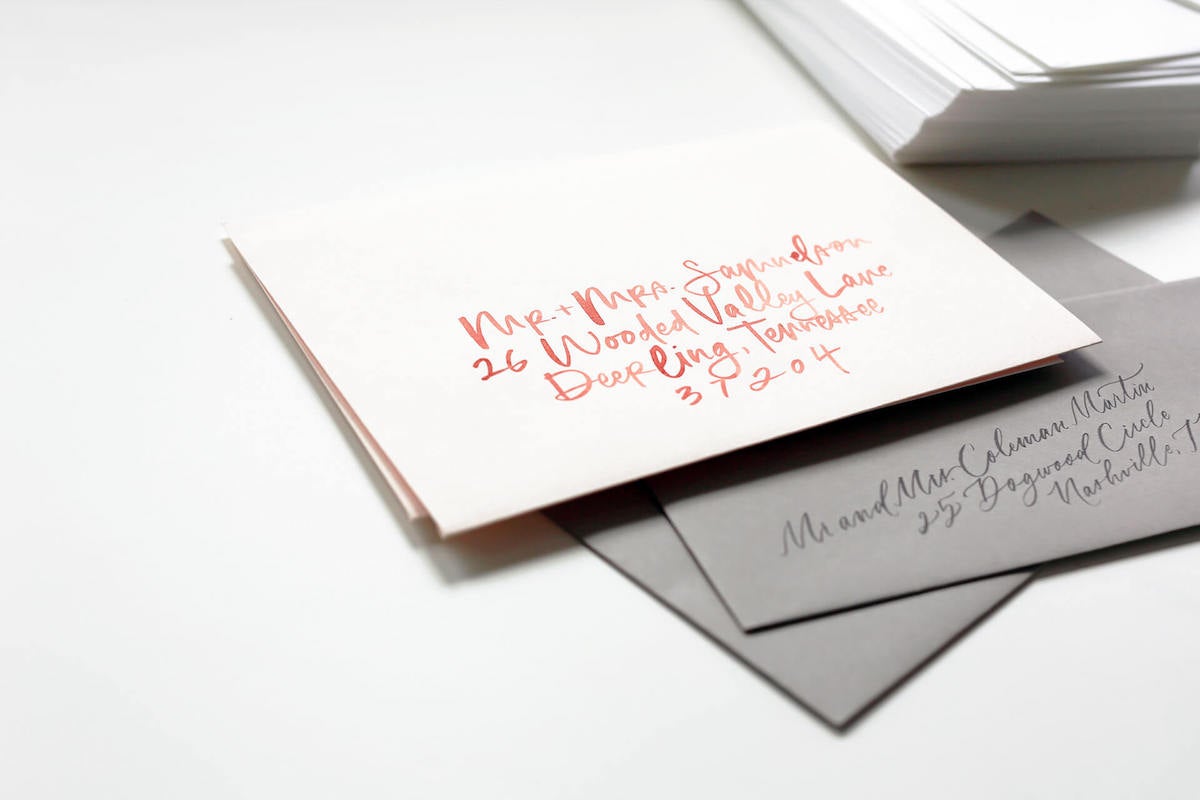 Mr. + Mrs. Samuelson
26 Wooded Valley Lane
Deerling, Tennessee
37204
Mr and Mrs Coleman Martin
25 Dogwood Circle
Nashville, T